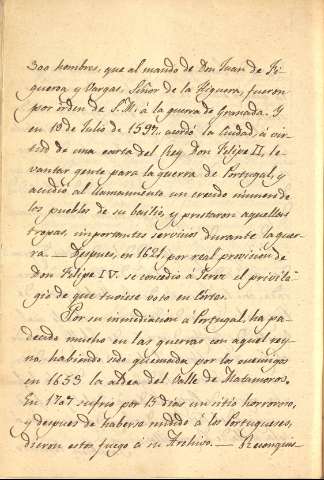 300 hombres, que al mando de Don Juan de Fi-
gueroa y Vargas, Señor de la Higuera, fueron
por órden de S. M. á la guerra de Granada. Y
en 18 de Julio de 1597, acordó la Ciudad, á vir-
tud de una carta del Rey Don Felipe II, le-
vantar gente para la guerra de Portugal, y
acudió al llamamiento un crecido numero de
los pueblos de su bailio, y prestaron aquellas
tropas, importantes servicios durante la guer-
ra. — Despues, en 1621, por real provision de
Don Felipe IV. se concedió á Jerez el privile-
gio de que tuviese voto en Córtes.
Por su inmediacion á Portugal, ha pa-
decido mucho en las guerras con aquel rey-
no, habiendo sido quemada por los enemigos
en 1653 la aldea del Valle de Matamoros.
En 1707 sufrio por 15 dias un sitio horroroso,
y despues de haberse rendido á los Portugueses,
dieron estos fuego á su Archivo. — Reconquis-